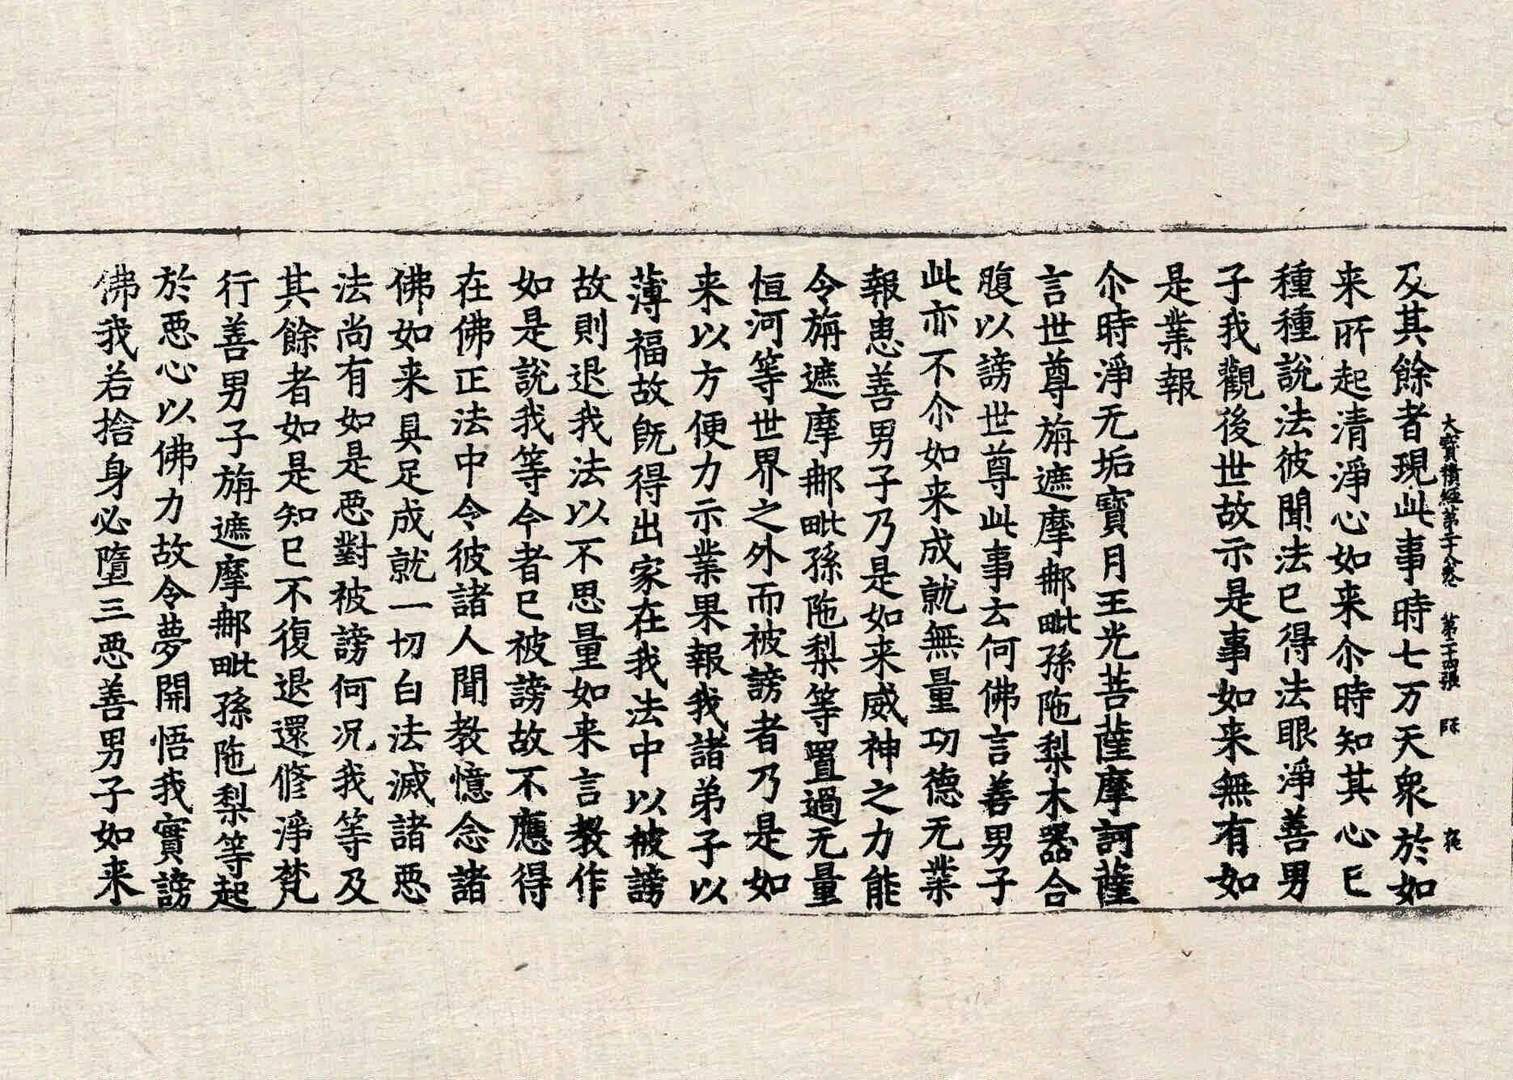 大寶積經第二十八卷　第二十四張
及其餘者現此事時七万天衆於如
来所起清淨心如来尒時知其心已
種種說法彼聞法已得法眼淨善男
子我觀後世故示是事如来無有如
是業報
尒時淨无垢寶月王光菩薩摩訶薩
言世尊旃遮摩那毗孫陁梨木器合
腹以謗世尊此事云何佛言善男子
此亦不尒如来成就無量功德无業
報患善男子乃是如来威神之力能
令旃遮摩那毗孫陁梨等置過无量
恒河等世界之外而被謗者乃是如
来以方便力示業果報我諸弟子以
薄福故旣得出家在我法中以被謗
故則退我法以不思量如来言教作
如是說我等今者已被謗故不應得
在佛正法中令彼諸人聞教憶念諸
佛如来具足成就一切白法滅諸惡
法尚有如是惡對被謗何况我等及
其餘者如是知已不復退還修淨梵
行善男子旃遮摩那毗孫陁梨等起
於惡心以佛力故令夢開悟我實謗
佛我若捨身必墮三惡善男子如来